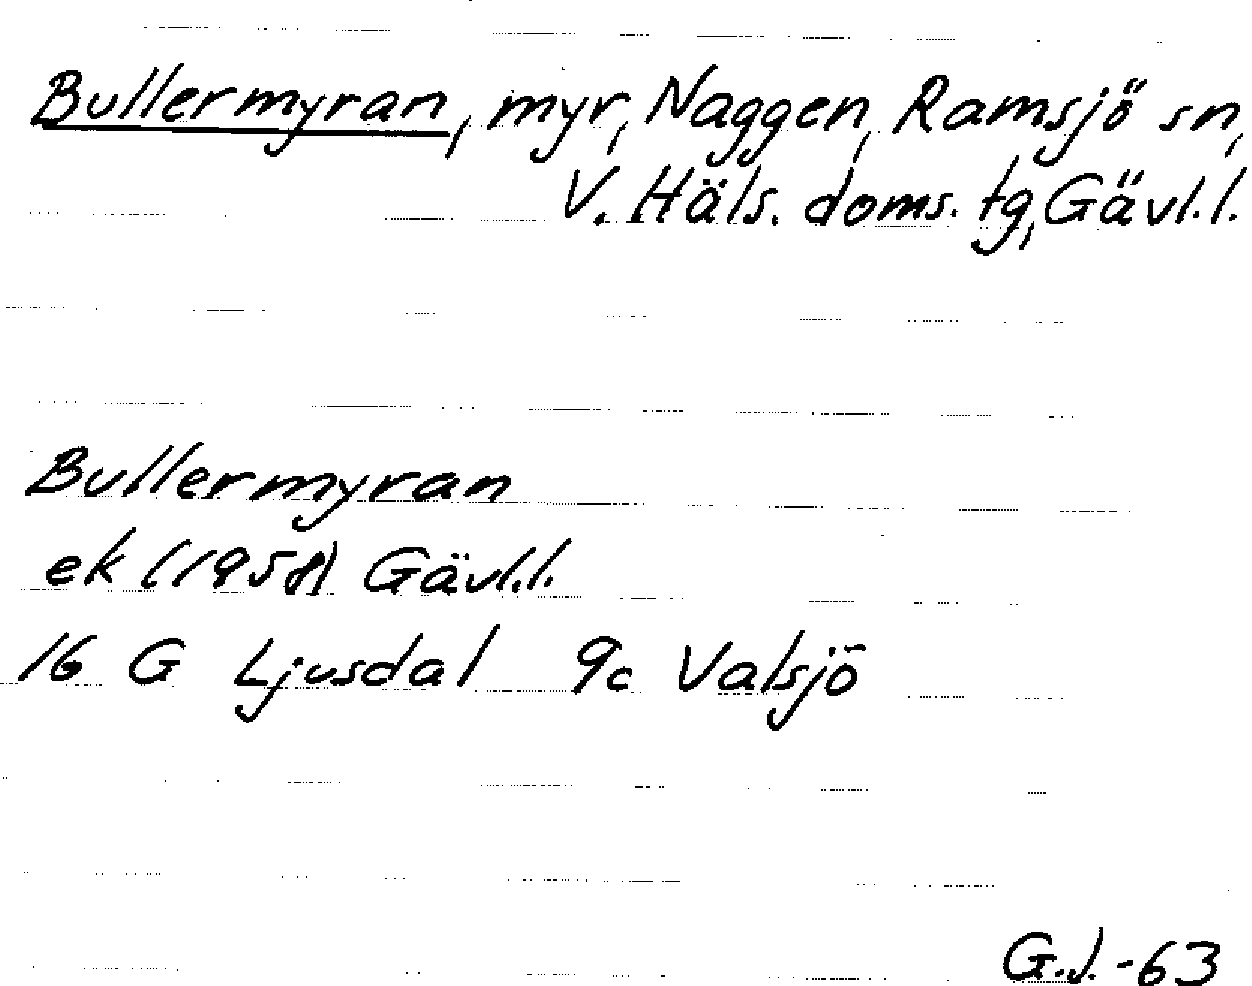 Bullermyran, myr, Naggen, Ramsjö sn,
V. Häls. doms. tg, Gävl.l.
Bullermyran
ek (1958) Gävl.l.
16 G Ljusdal 9c Valsjö
G.J.-63